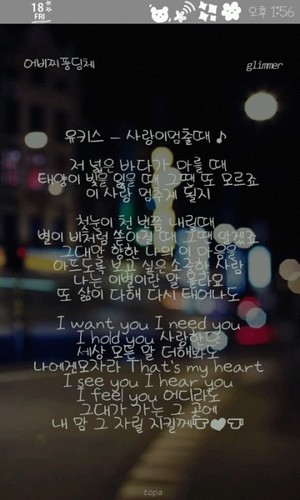 18 수
FRI
오후 1:56
어비찌퐁딩체
glimmer
유키스 - 사랑이멈출때 ♪
저 넓은 바다가 마를 때
태양이 빛을 잃을 때 그땐 또 모르죠
이 사랑 멈추게 될지
첫눈이 천 번쯤 내릴때
별이 비처럼 쏟아질 때 그땐 알겠죠
그대만 향한 나의 이 마음을
보고 싶은 사람
나는 이별이란 잘 몰라요
또 삶이 다해 다시 태어나도
I want you I need you
I hold you 사랑한단
세상 모든 말 더해봐도
나에겐모자라 That's my heart
I see you I hear you
I feel you 어디라도
그대가 가는 그 곳에
내 맘 그 자릴 지킬께♥
topa